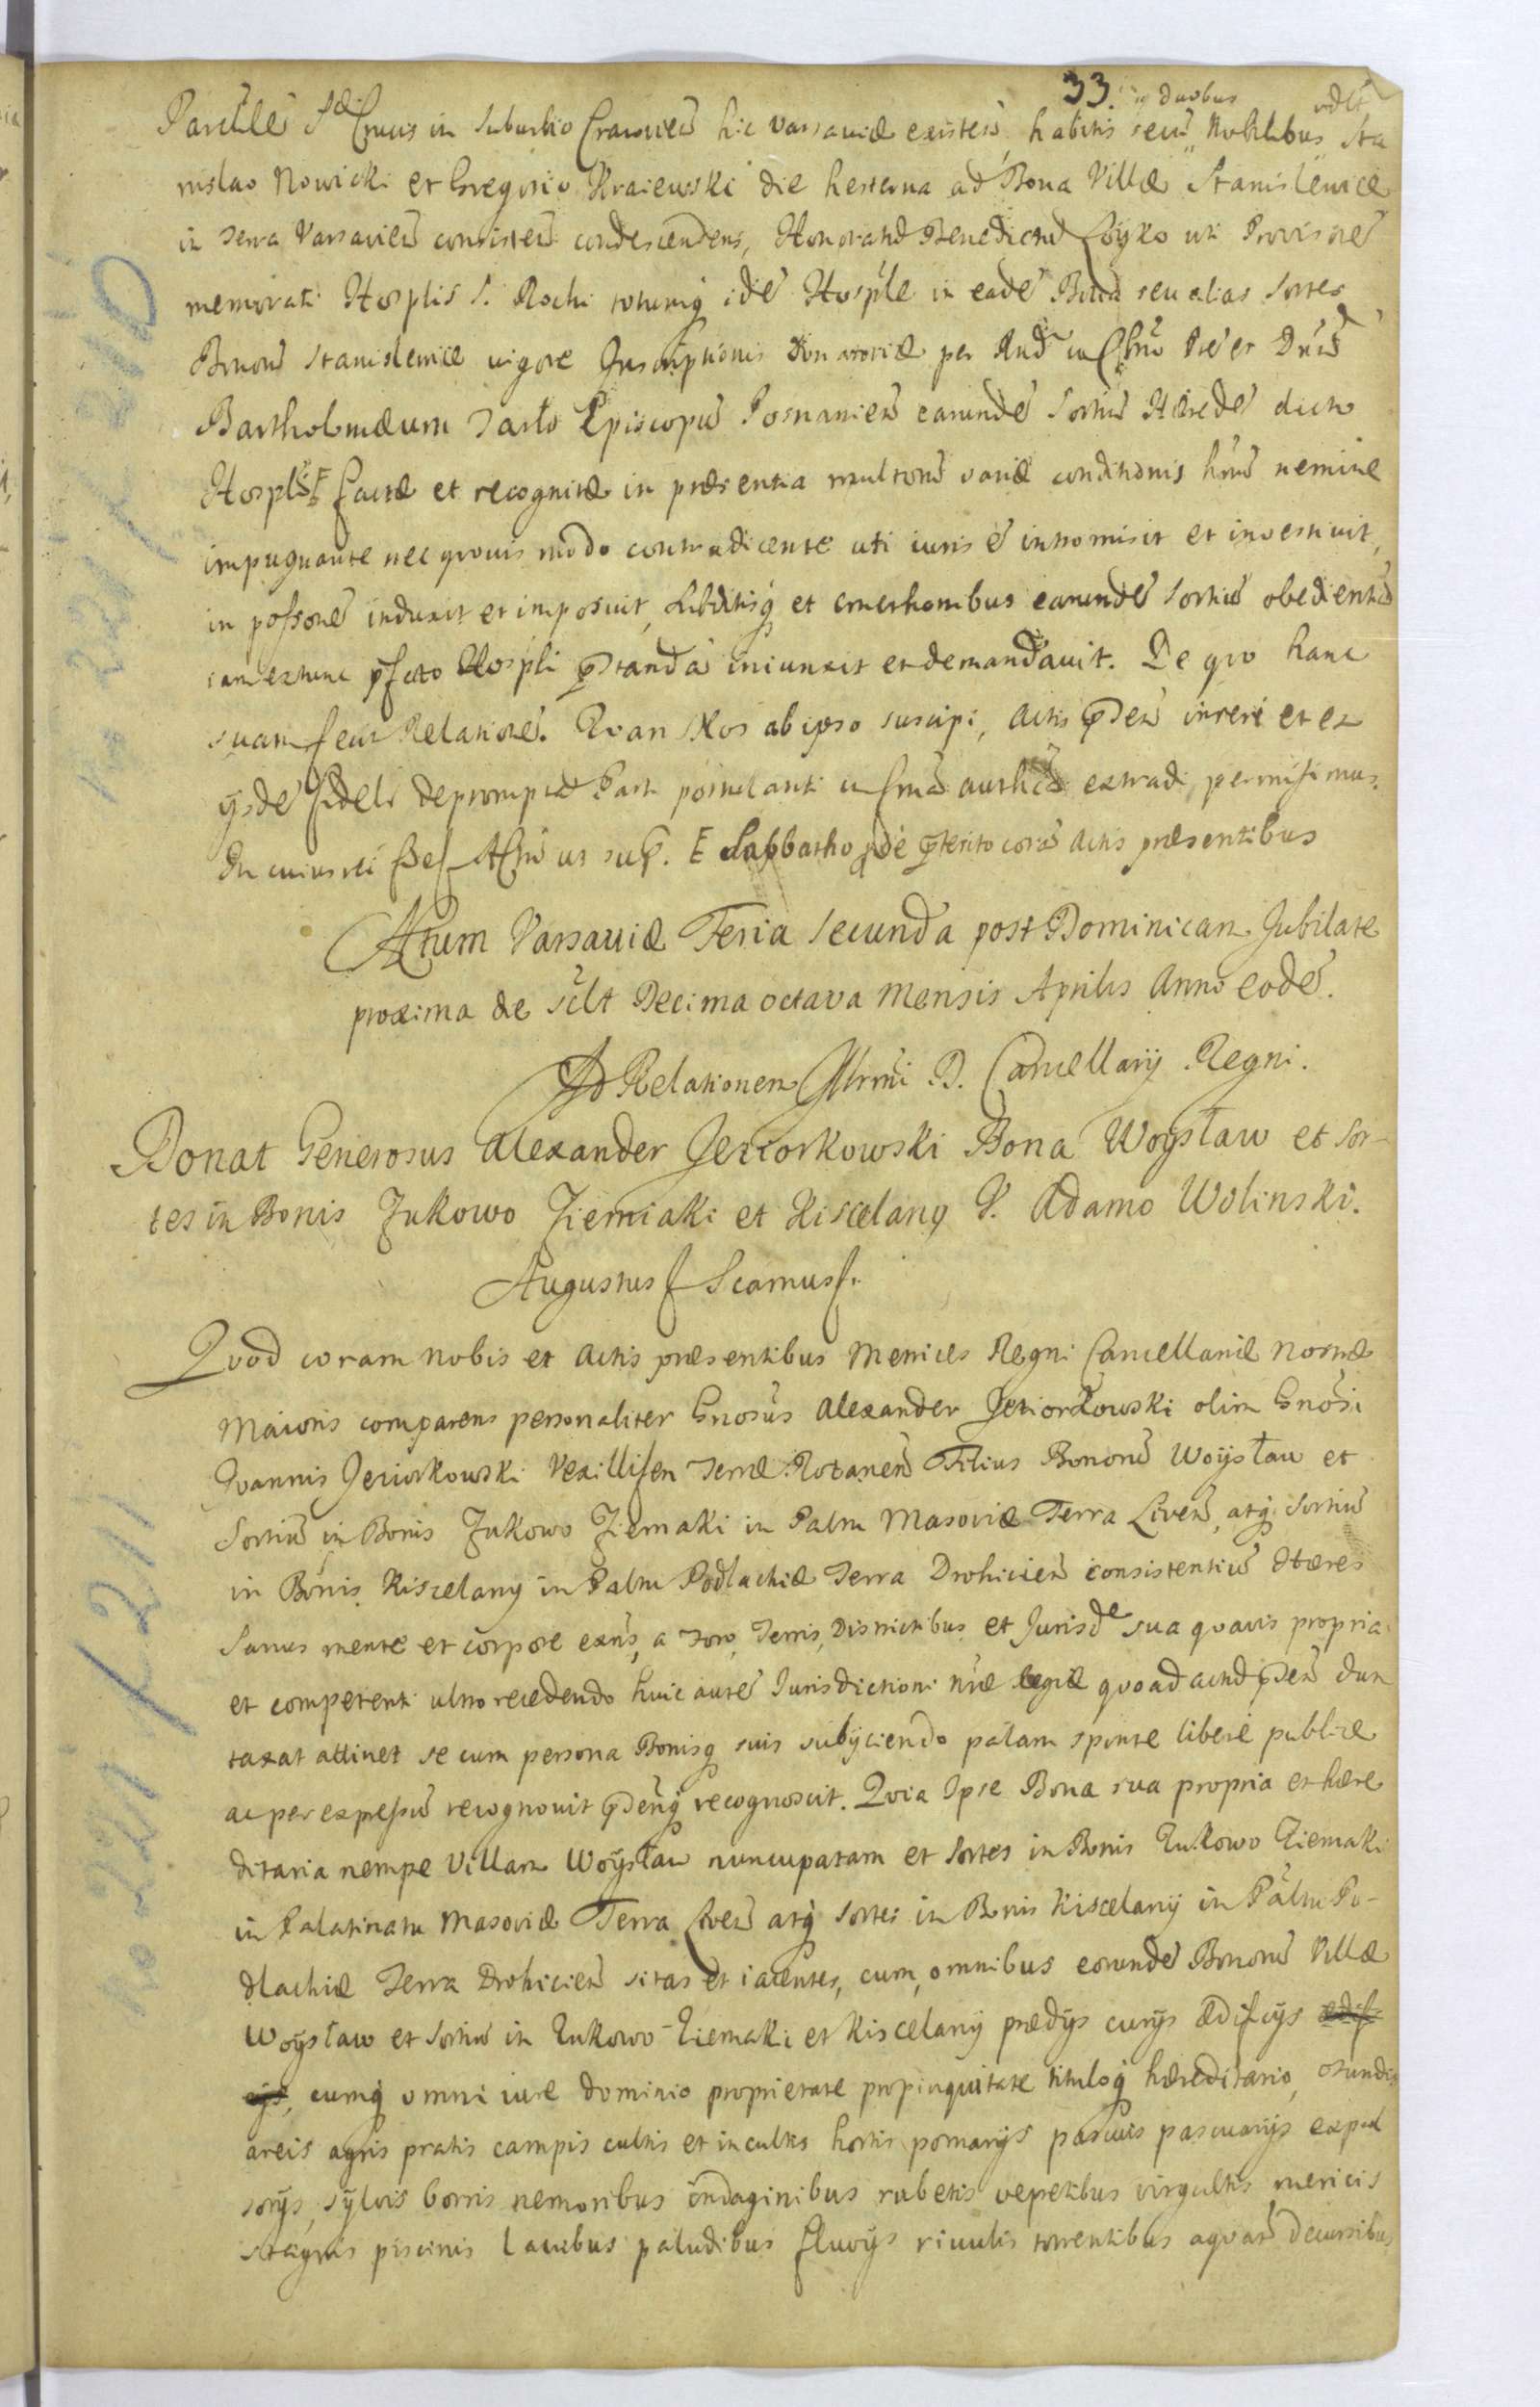 33. duobus vdlt
Parclle S. Crucis in Suburbio Cracovieñ hic Varsaviæ existeñ habitis secũ Nobilibus Sta
nislao Nowicki et Gregorio Kraiewski die hesterna ad Bona Villæ Stanislewice
in Terra Varsavieñ consisteñ condescendens, Honoratũ Benedictũ Coyko uti Provisorẽ
memorati Hosplis S. Rochi totumq idẽ Hosple in eadẽ Bona seu alias Sortes
Bonorũ Stanislewice vigore Inscriptionis Donatoriæ per Rndũ in Chrõ Prẽ et Dnũ
Bartholomæum Tarło Episcopũ Posnanieñ earundẽ Sortiũ Hæredẽ dicto
Hospli F factæ et recognitæ in præsentia multorũ variæ conditionis hnũ nemine
impugnante nec qvovis modo contradicente uti iuris ẽ intromisit et investivit,
in possonẽ induxit et imposuit, Subditisq et cmethonibus earundẽ Sortiũ obedientiã
iam extunc pfato Hospli pstandã iniunxit et demandavit. De qvo hanc
suam fecit Relationẽ. Qvan Nos ab ipso suscipi, Actis pdeñ inseri et ex
ijsdẽ fideli depromptã Parti postulanti in formã authcã extradi permisimus.
In cuius rei fidẽ Actũ ut sup. F Sabbatho pdẽ pterito corã Actis præsentibus
Actum Varsaviæ Feria Secunda post Dominicam Jubilate
proxima de sclt Decima octava Mensis Aprilis Anno eodẽ.
Ad Relationem Illrmi D. Cancellarij Regni.
Donat Generosus Alexander Jeziorkowski Bona Woysław et Sor-
tes in Bonis Zukowo Ziemiaki et Kiscelany G. Adamo Wolinski.
Augustus f Scamus f.
Qvod coram nobis et Actis præsentibus Metrices Regni Cancellariæ nostræ
Maioris comparens personaliter Gnosus Alexander Jeziorkowski olim Gnosi
Joannis Jeziorkowski Vexilliferi Terræ Rozaneñ Filius Bonorũ Woysław et
Sortiũ in Bonis Zukowo Ziemaki in Paltu Masoviæ Terra Liveñ, atq Sortiũ
in Bonis Kiscelany in Paltu Podlachiæ Terra Drohicieñ consistentiũ Hæres
Sanus mente et corpore exñs, a foro, Terris, Districtibus et Jurisde sua qvavis propria
et competenti ultro recedendo huic autẽ Jurisdictioni nræ Regiæ qvoad actũ pdeñ dun
taxat attinet se cum persona Bonisq suis subijciendo palam sponte libere publice
ac per expressũ recognovit pdeñq recognoscit. Qvia Ipse Bona sua propria et hære
ditaria nempe Villam Woysław nuncupatam et Sortes in Bonis Zukowo Ziemaki
in Palatinatu Masoviæ Terra Liveñ atq Sortes in Bonis Kiscelany in Paltu Po-
dlachiæ Terra Drohicieñ sitas et iacentes, cum omnibus eorundẽ Bonorũ Villæ
Woysław et Sortiũ in Zukowo-Ziemaki et Kiscelany prædijs curijs ædificijs ædifi
cijs, cumq omni iure dominio proprietate propinquitate tituloq hæreditario, fundis
areis agris pratis campis cultis et incultis hortis pomarijs pascuis pascuarijs expul
sorijs, sylvis borris nemoribus indaginibus rubetis vepretibus virgultis mericis
stagnis piscinis lacubus paludibus fluvijs rivulis torrentibus aqvarũ decursibus